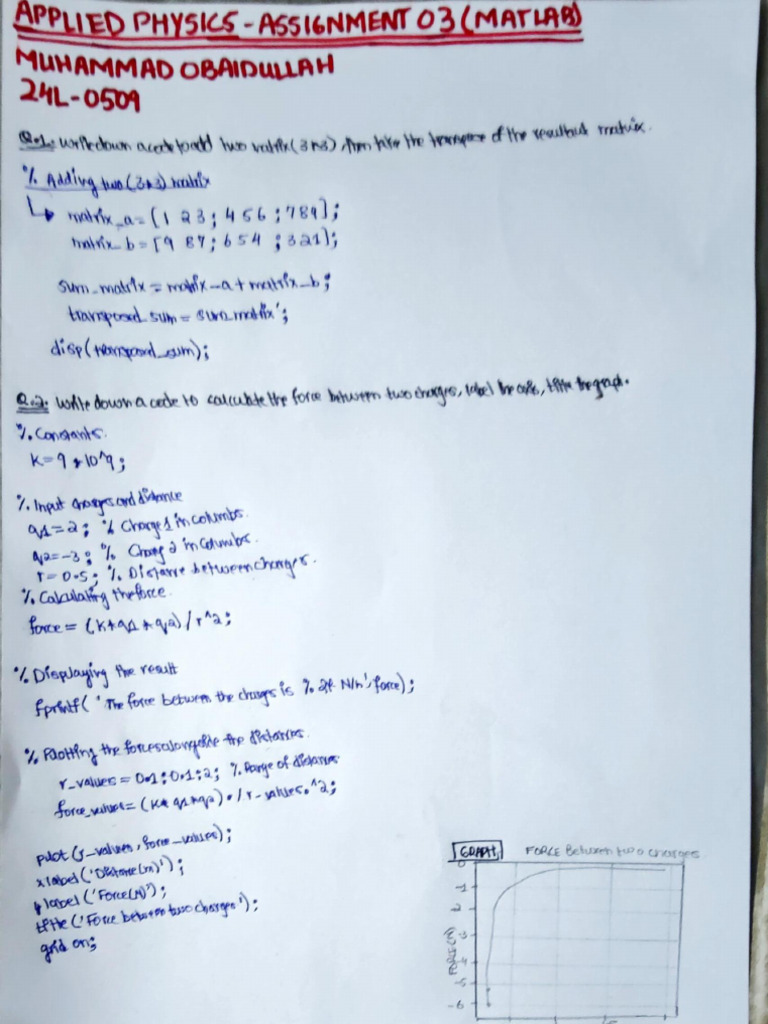 APPLIED PHYSICS - ASSIGNMENT 03 (MATLAB)
MUHAMMAD OBAIDULLAH
24L-0509
Q.1: Write down a code to add two matrix (3×3) then take the transpose of the resultant matrix.
% Adding two (3×3) matrix
matrix_a = [1 2 3; 4 5 6; 7 8 9];
matrix_b = [9 8 7; 6 5 4; 3 2 1];
sum_matrix = matrix_a + matrix_b;
transposed_sum = sum_matrix';
disp(transposed_sum);
Q.2: Write down a code to calculate the force between two charges, label the axis, title the graph.
% Constants.
K = 9 * 10^9;
% Input charges and distance
q1 = 2; % Charge 1 in columbs.
q2 = -3; % Charg 2 in Columbs.
r = 0.5; % Distance between charges.
% Calculating the force.
force = (K * q1 * q2) / r^2;
% Displaying the result
fprintf('The force between the charges is %.2f N/n', force);
% Plotting the forces alongside the distances.
r_values = 0.1:0.1:2; % Range of distances
force_values = (K * q1 * q2) ./ r_values.^2;
plot(r_values, force_values);
xlabel('Distance(m)');
ylabel('Force(N)');
title('Force between two charges');
grid on;
GRAPH FORCE Between two charges
0
-1
-2
-3
-4
-5
-6
FORCE(N)